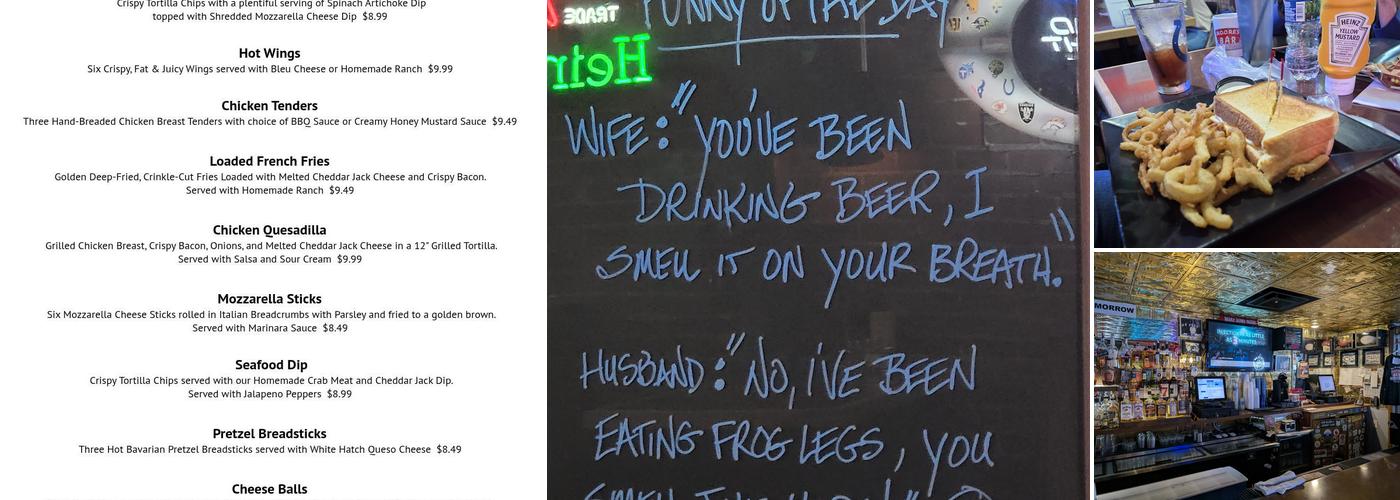 Crispy Tortilla Chips with a plentiful serving of Spinach Artichoke Dip
topped with Shredded Mozzarella Cheese Dip $8.99
Hot Wings
Six Crispy, Fat & Juicy Wings served with Bleu Cheese or Homemade Ranch $9.99
Chicken Tenders
Three Hand-Breaded Chicken Breast Tenders with choice of BBQ Sauce or Creamy Honey Mustard Sauce $9.49
Loaded French Fries
Golden Deep-Fried, Crinkle-Cut Fries Loaded with Melted Cheddar Jack Cheese and Crispy Bacon.
Served with Homemade Ranch $9.49
Chicken Quesadilla
Grilled Chicken Breast, Crispy Bacon, Onions, and Melted Cheddar Jack Cheese in a 12" Grilled Tortilla.
Served with Salsa and Sour Cream $9.99
Mozzarella Sticks
Six Mozzarella Cheese Sticks rolled in Italian Breadcrumbs with Parsley and fried to a golden brown.
Served with Marinara Sauce $8.49
Seafood Dip
Crispy Tortilla Chips served with our Homemade Crab Meat and Cheddar Jack Dip.
Served with Jalapeno Peppers $8.99
Pretzel Breadsticks
Three Hot Bavarian Pretzel Breadsticks served with White Hatch Queso Cheese $8.49
Cheese Balls
TRADE
Hein
FUNNY OF THE DAY
WIFE: "YOU'VE BEEN
DRINKING BEER, I
SMELL IT ON YOUR BREATH."
HUSBAND: "NO, I'VE BEEN
EATING FROG LEGS, YOU
BAR
HEINZ
YELLOW
MUSTARD
MORROW
MINUTES